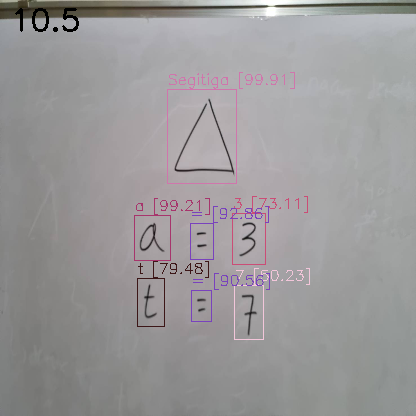 10.5
Segitiga [99.91]
a [99.21] = [92.86] 3 [73.11]
a = 3
t [79.48] = [90.56] 7 [50.23]
t = 7